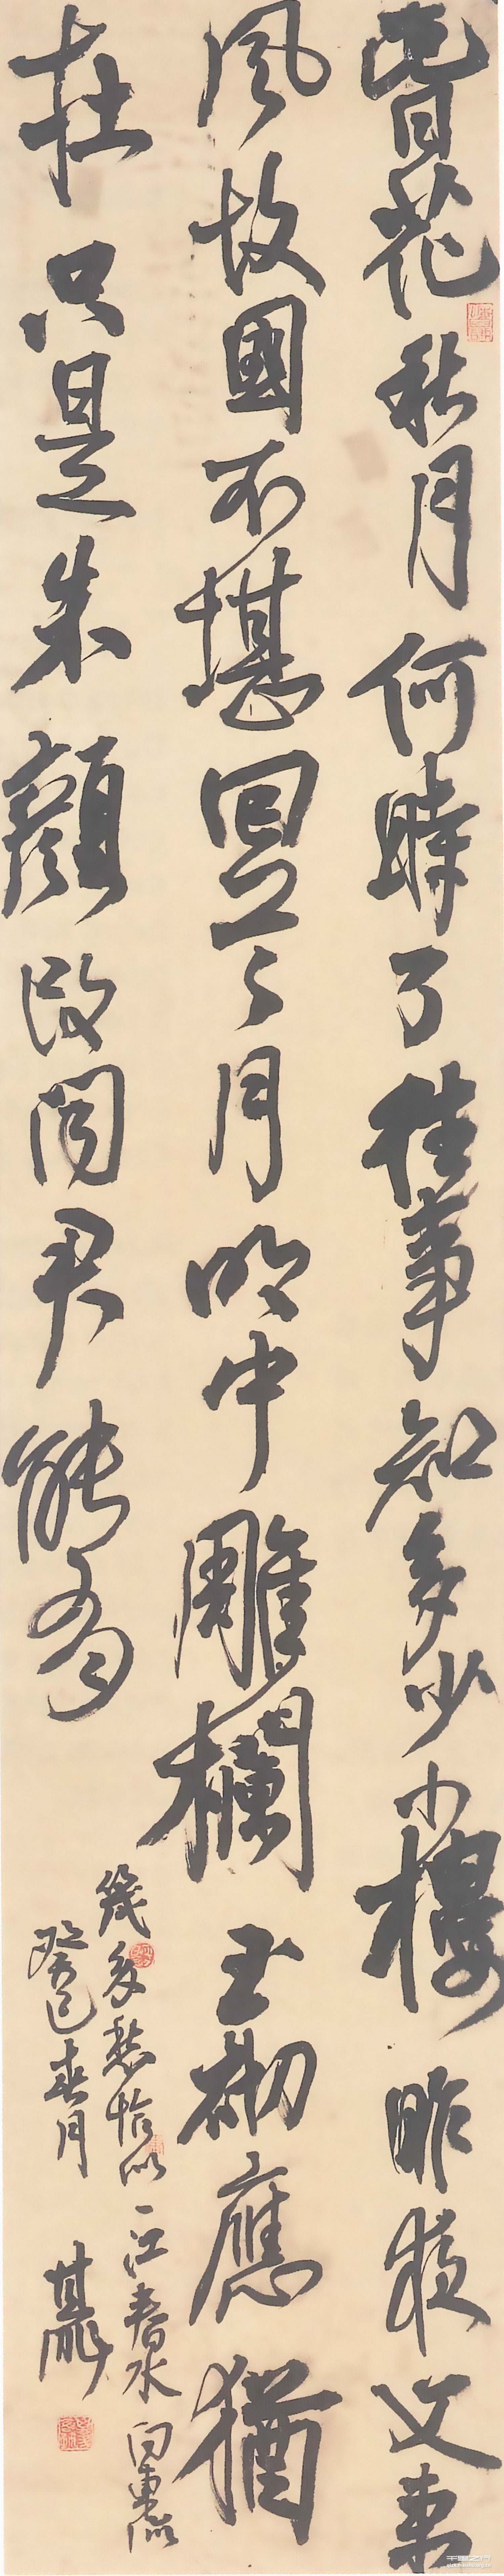 春花秋月何時了往事知多少小樓昨夜又東
風故國不堪回首月明中雕欄玉砌應猶
在只是朱顏改問君能有
幾多愁恰似一江春水向東流
癸巳春月